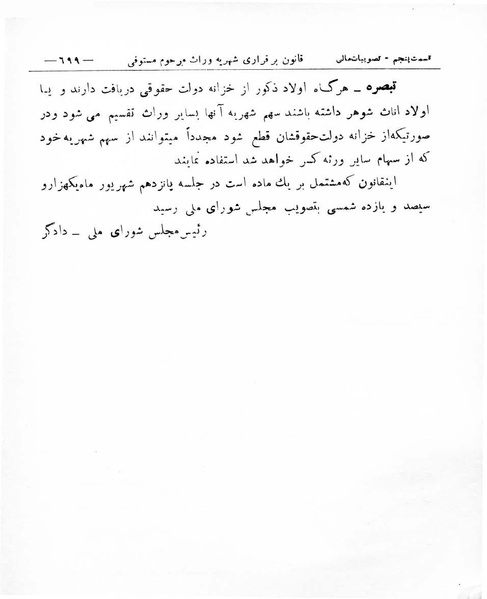 قسمت پنجم - تصویبات مالی قانون برقراری شهریه وراث مرحوم مستوفی — ٦٩٩ —
تبصره ـ هرگاه اولاد ذکور از خزانه دولت حقوقی دریافت دارند و یا
اولاد اناث شوهر داشته باشند سهم شهریه آنها بسایر وراث تقسیم می شود ودر
صورتیکه از خزانه دولت حقوقشان قطع شود مجدداً میتوانند از سهم شهریه خود
که از سهام سایر ورثه کسر خواهد شد استفاده نمایند
اینقانون که مشتمل بر یك ماده است در جلسه پانزدهم شهریور ماه یکهزارو
سیصد و یازده شمسی بتصویب مجلس شورای ملی رسید
رئیس مجلس شورای ملی ـ دادگر